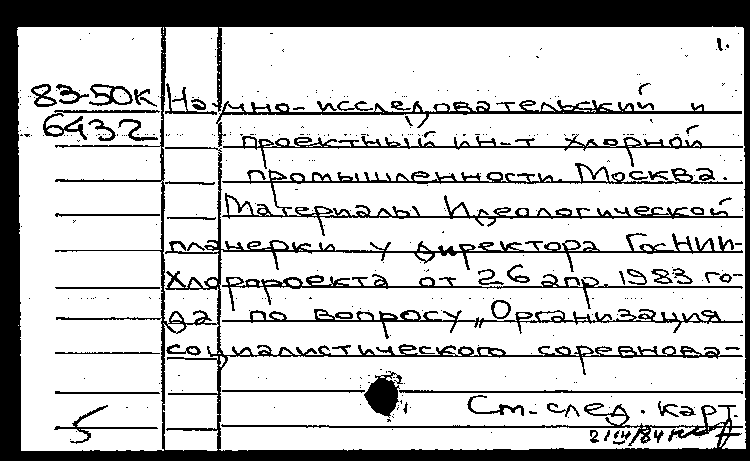 1.
83-50К Научно-исследовательский и
6432 проектный ин-т хлорной
промышленности. Москва.
Материалы Идеологической
планерки у директора ГосНИИ-
Хлорпроекта от 26 апр. 1983 го-
да по вопросу „Организация
социалистического соревнова-
5 См. след. карт.
2/III/84